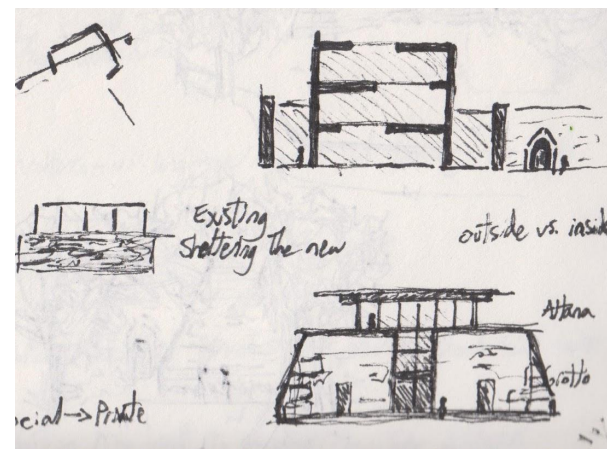 Existing
Sheltering the new
outside vs. inside
Altana
Grotto
ocial → Private